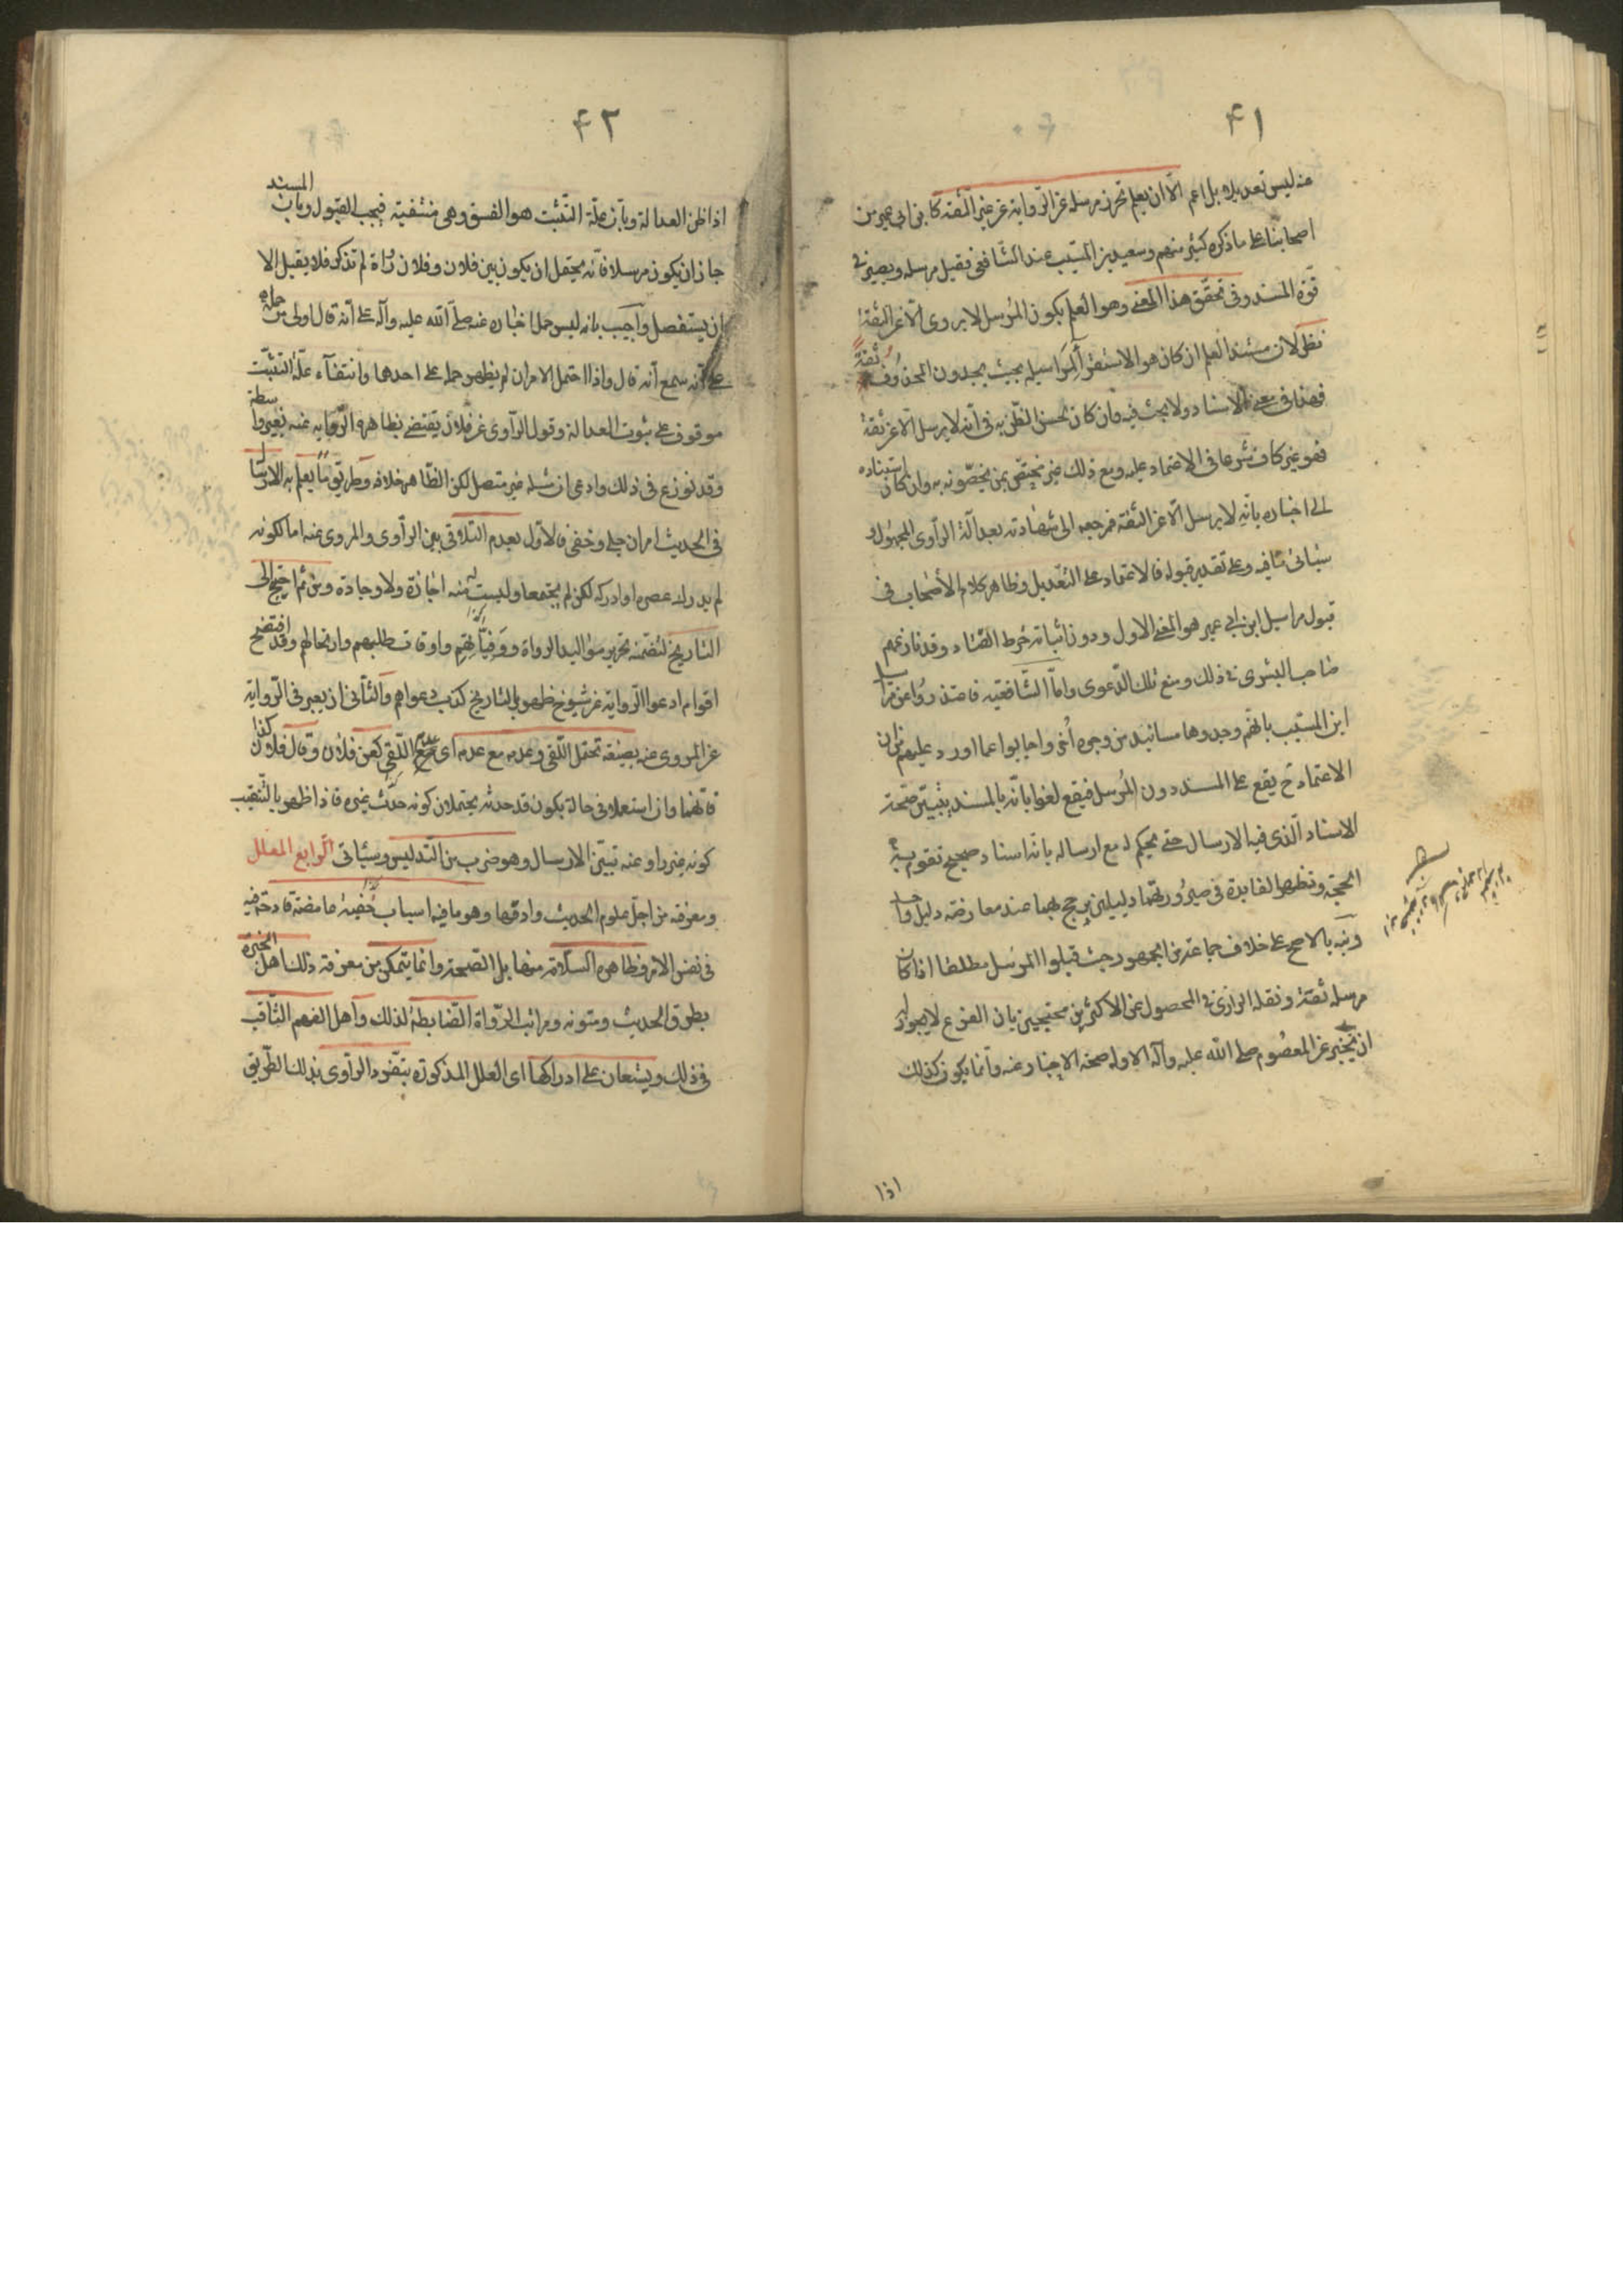 ۴۱
عنه ليس تعديلا بل اعم الّا ان يعلم تحرز مرسله عن الرّواية عن غير الثّقة كابن ابي عمير من
اصحابنا على ما ذكره كثير منهم وسعيد بن المسيّب عند الشّافعي فيقبل مرسله ويصير في
قوّة المسند وفي تحقّق هذا المعنى وهو العلم بكون المرسل لا يروى الّا عن الثقة
نظر لان مستند العلم ان كان هو الاستقراء لمراسيله بحيث يجدون المحذوف ثقة
فهذا في معنى الاسناد ولا بحث فيه وان كان لحسن الظّن به في انّه لا يرسل الّا عن ثقة
فهو غير كاف شرعا في الاعتماد عليه ومع ذلك غير مختصّ بمن يخصّونه به وان كان استناده
الى اخباره بانّه لا يرسل الّا عن الثقة فمرجعه الى شهادته بعدالة الراوى المجهول و
سيأتي ما فيه وعلى تقدير قبوله فالاعتماد على التعديل وظاهر كلام الأصحاب في
قبول مراسيل ابن ابي عمير هو المعنى الاول ودون اثباته خرط القتاد وقد نازعهم
صاحب البشرى في ذلك ومنع تلك الدّعوى وامّا الشّافعيّة فاعتذروا عن مراسيل
ابن المسيّب بانّهم وجدوها مسانيد من وجوه أخر واجابوا عما اورد عليهم من ان
الاعتماد ح يقع على المسند دون المرسل فيقع لغوا بانّه بالمسند يتبيّن صحّة
الاسناد الّذي فيه الارسال حتى يحكم له مع ارساله بانه اسناد صحيح تقوم به
الحجّة وتظهر الفايدة في صيرورتهما دليلين يرجح بهما عند معارضة دليل واحد
ونبه بالاصح على خلاف جماعة من الجمهور حيث قبلوا المرسل مطلقا اذا كان
مرسله ثقة ونقله الرازى في المحصول عن الاكثرين محتجين بان الفرع لا يجوز له
ان يخبر عن المعصوم صلى الله عليه وآله الا وله صحة الاخبار عنه وانما يكون كذلك
اذا
۴۲
اذا ظن العدالة وبانّ علّة التثبّت هو الفسق وهي منتفية فيجب القبول وبانّ المسند
جاز ان يكون مرسلا فانّه يحتمل ان يكون بين فلان وفلان رواة لم تذكر فلا يقبل الا
ان يستفصل واجيب بانه ليس حمل اخباره عنه صلّى الله عليه وآله على انّه قال اولى من حمله
على انه سمع انّه قال واذا احتمل الامران لم يظهر حمله على احدهما وانتفاء علّة التثبّت
موقوف على ثبوت العدالة وقول الرّاوى عن فلان يقتضى بظاهره الرّواية عنه بغير واسطة
وقد نوزع في ذلك وادعى ان مثله غير متصل لكن الظّاهر خلافه وطريق ما يعلم به الارسال
في الحديث امران جلى وخفى فالأوّل بعدم التلاقى بين الرّاوى والمروى عنه اما لكونه
لم يدرك عصره او ادركه لكن لم يجتمعا وليست له منه اجازة ولا وجادة ومن ثم احتيج الى
التاريخ لتضمنه تحرير مواليد الرواة ووفيّاتهم واوقات طلبهم وارتحالهم وقد افتضح
اقوام ادعوا الرّواية عن شيوخ ظهر بالتاريخ كذب دعواهم والثّاني ان يعبر في الرّواية
عن المروى عنه بصيغة تحتمل اللّقى وعدمه مع عدمه اى عدم اللّقى كعن فلان وقال فلان كذا
فانّهما وان استعملا في حالة يكون قد حدثه يحتملان كونه حدّث غيره فاذا ظهر بالتّنقيب
كونه غير راو عنه تبيّن الارسال وهو ضرب من التّدليس وسيأتي الرّابع المعلل
ومعرفته من اجلّ علوم الحديث وادقّها وهو ما فيه اسباب خفيّة غامضة قادحة فيه
في نفس الامر وظاهره السّلامة منها بل الصّحة وانّما يتمكن من معرفة ذلك اهل الخبرة
بطرق الحديث ومتونه ومراتب الرّواة الضّابطة لذلك وأهل الفهم الثّاقب
في ذلك ويستعان على ادراكها اى العلل المذكورة بتفّرد الرّاوى بذلك الطّريق